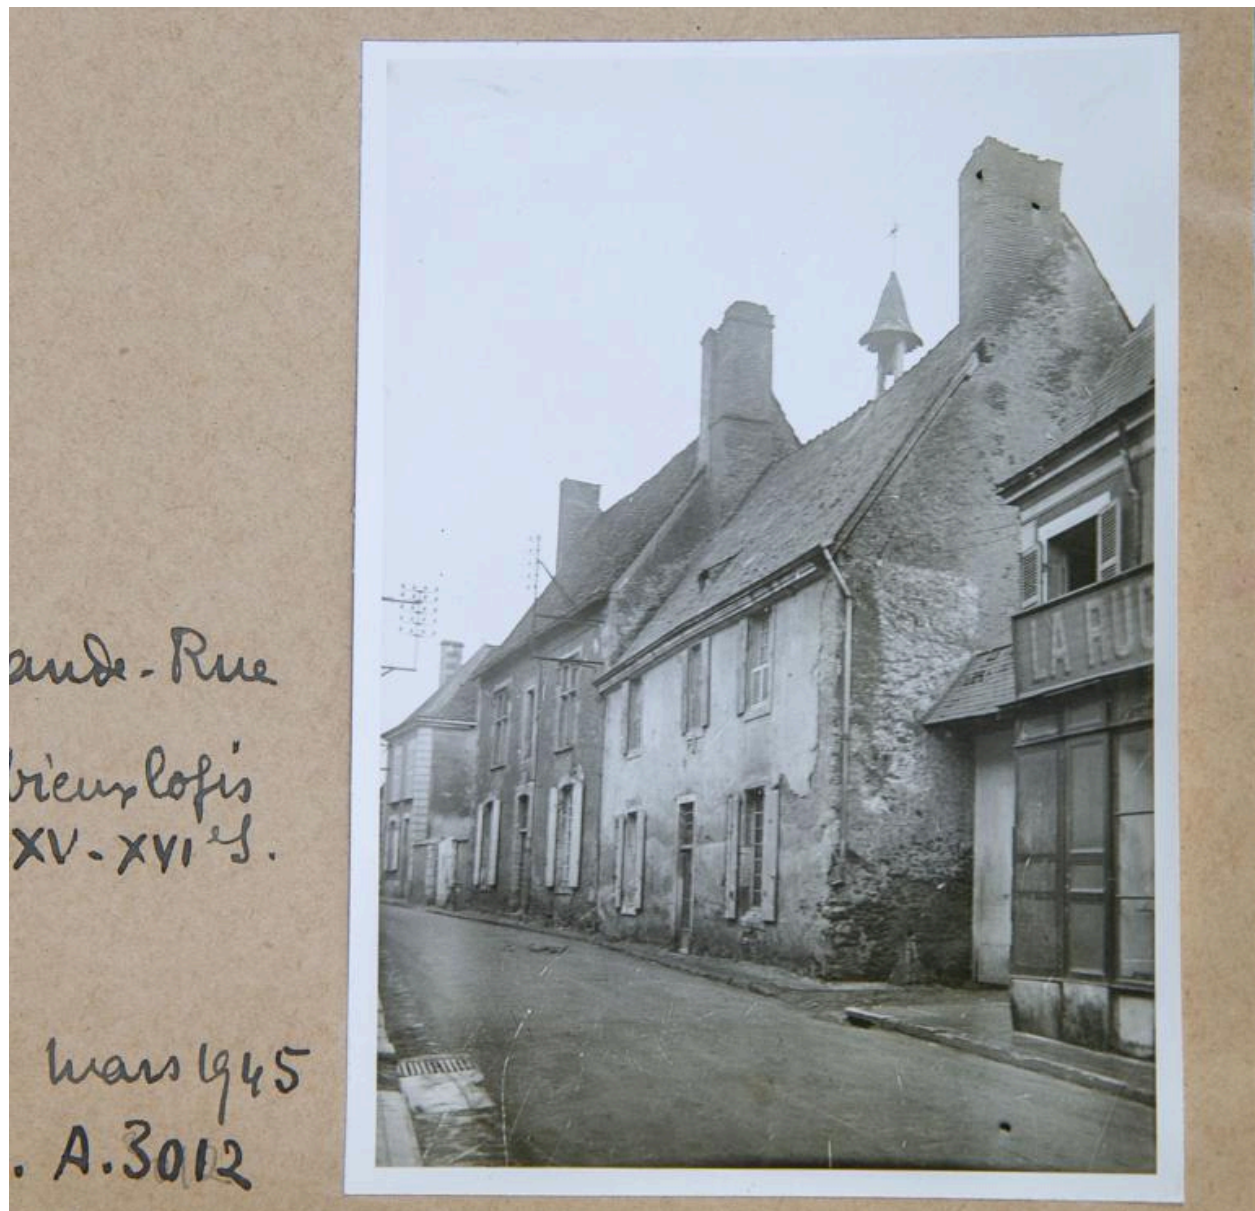 ande-Rue
vieux logis
XV-XVIe S.
mars 1945
. A.3012
LA RUC